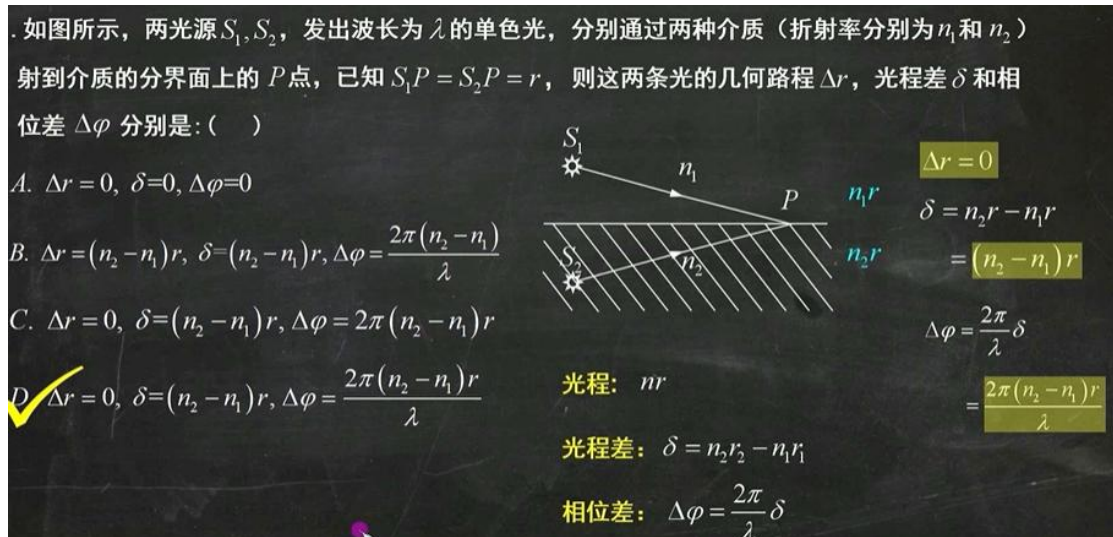 . 如图所示，两光源 S₁, S₂，发出波长为 λ 的单色光，分别通过两种介质（折射率分别为 n₁ 和 n₂）
射到介质的分界面上的 P 点，已知 S₁P = S₂P = r，则这两条光的几何路程 Δr，光程差 δ 和相
位差 Δφ 分别是:( )
A. Δr = 0, δ=0, Δφ=0
B. Δr = (n₂ − n₁)r, δ=(n₂ − n₁)r, Δφ = 2π(n₂ − n₁)/λ
C. Δr = 0, δ=(n₂ − n₁)r, Δφ = 2π(n₂ − n₁)r
D. Δr = 0, δ=(n₂ − n₁)r, Δφ = 2π(n₂ − n₁)r/λ
S₁
n₁
P
S₂
n₂
n₁r
n₂r
光程: nr
光程差: δ = n₂r₂ − n₁r₁
相位差: Δφ = 2π/λ δ
Δr = 0
δ = n₂r − n₁r
= (n₂ − n₁)r
Δφ = 2π/λ δ
= 2π(n₂ − n₁)r/λ